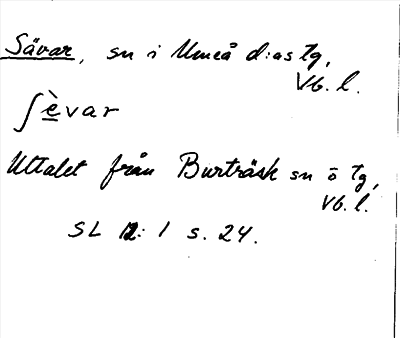 Sävar, sn i Umeå d:as tg,
Vb. l.
ʃèvar
Uttalet från Burträsk sn ö tg,
Vb. l.
SL 12: 1 s. 24.